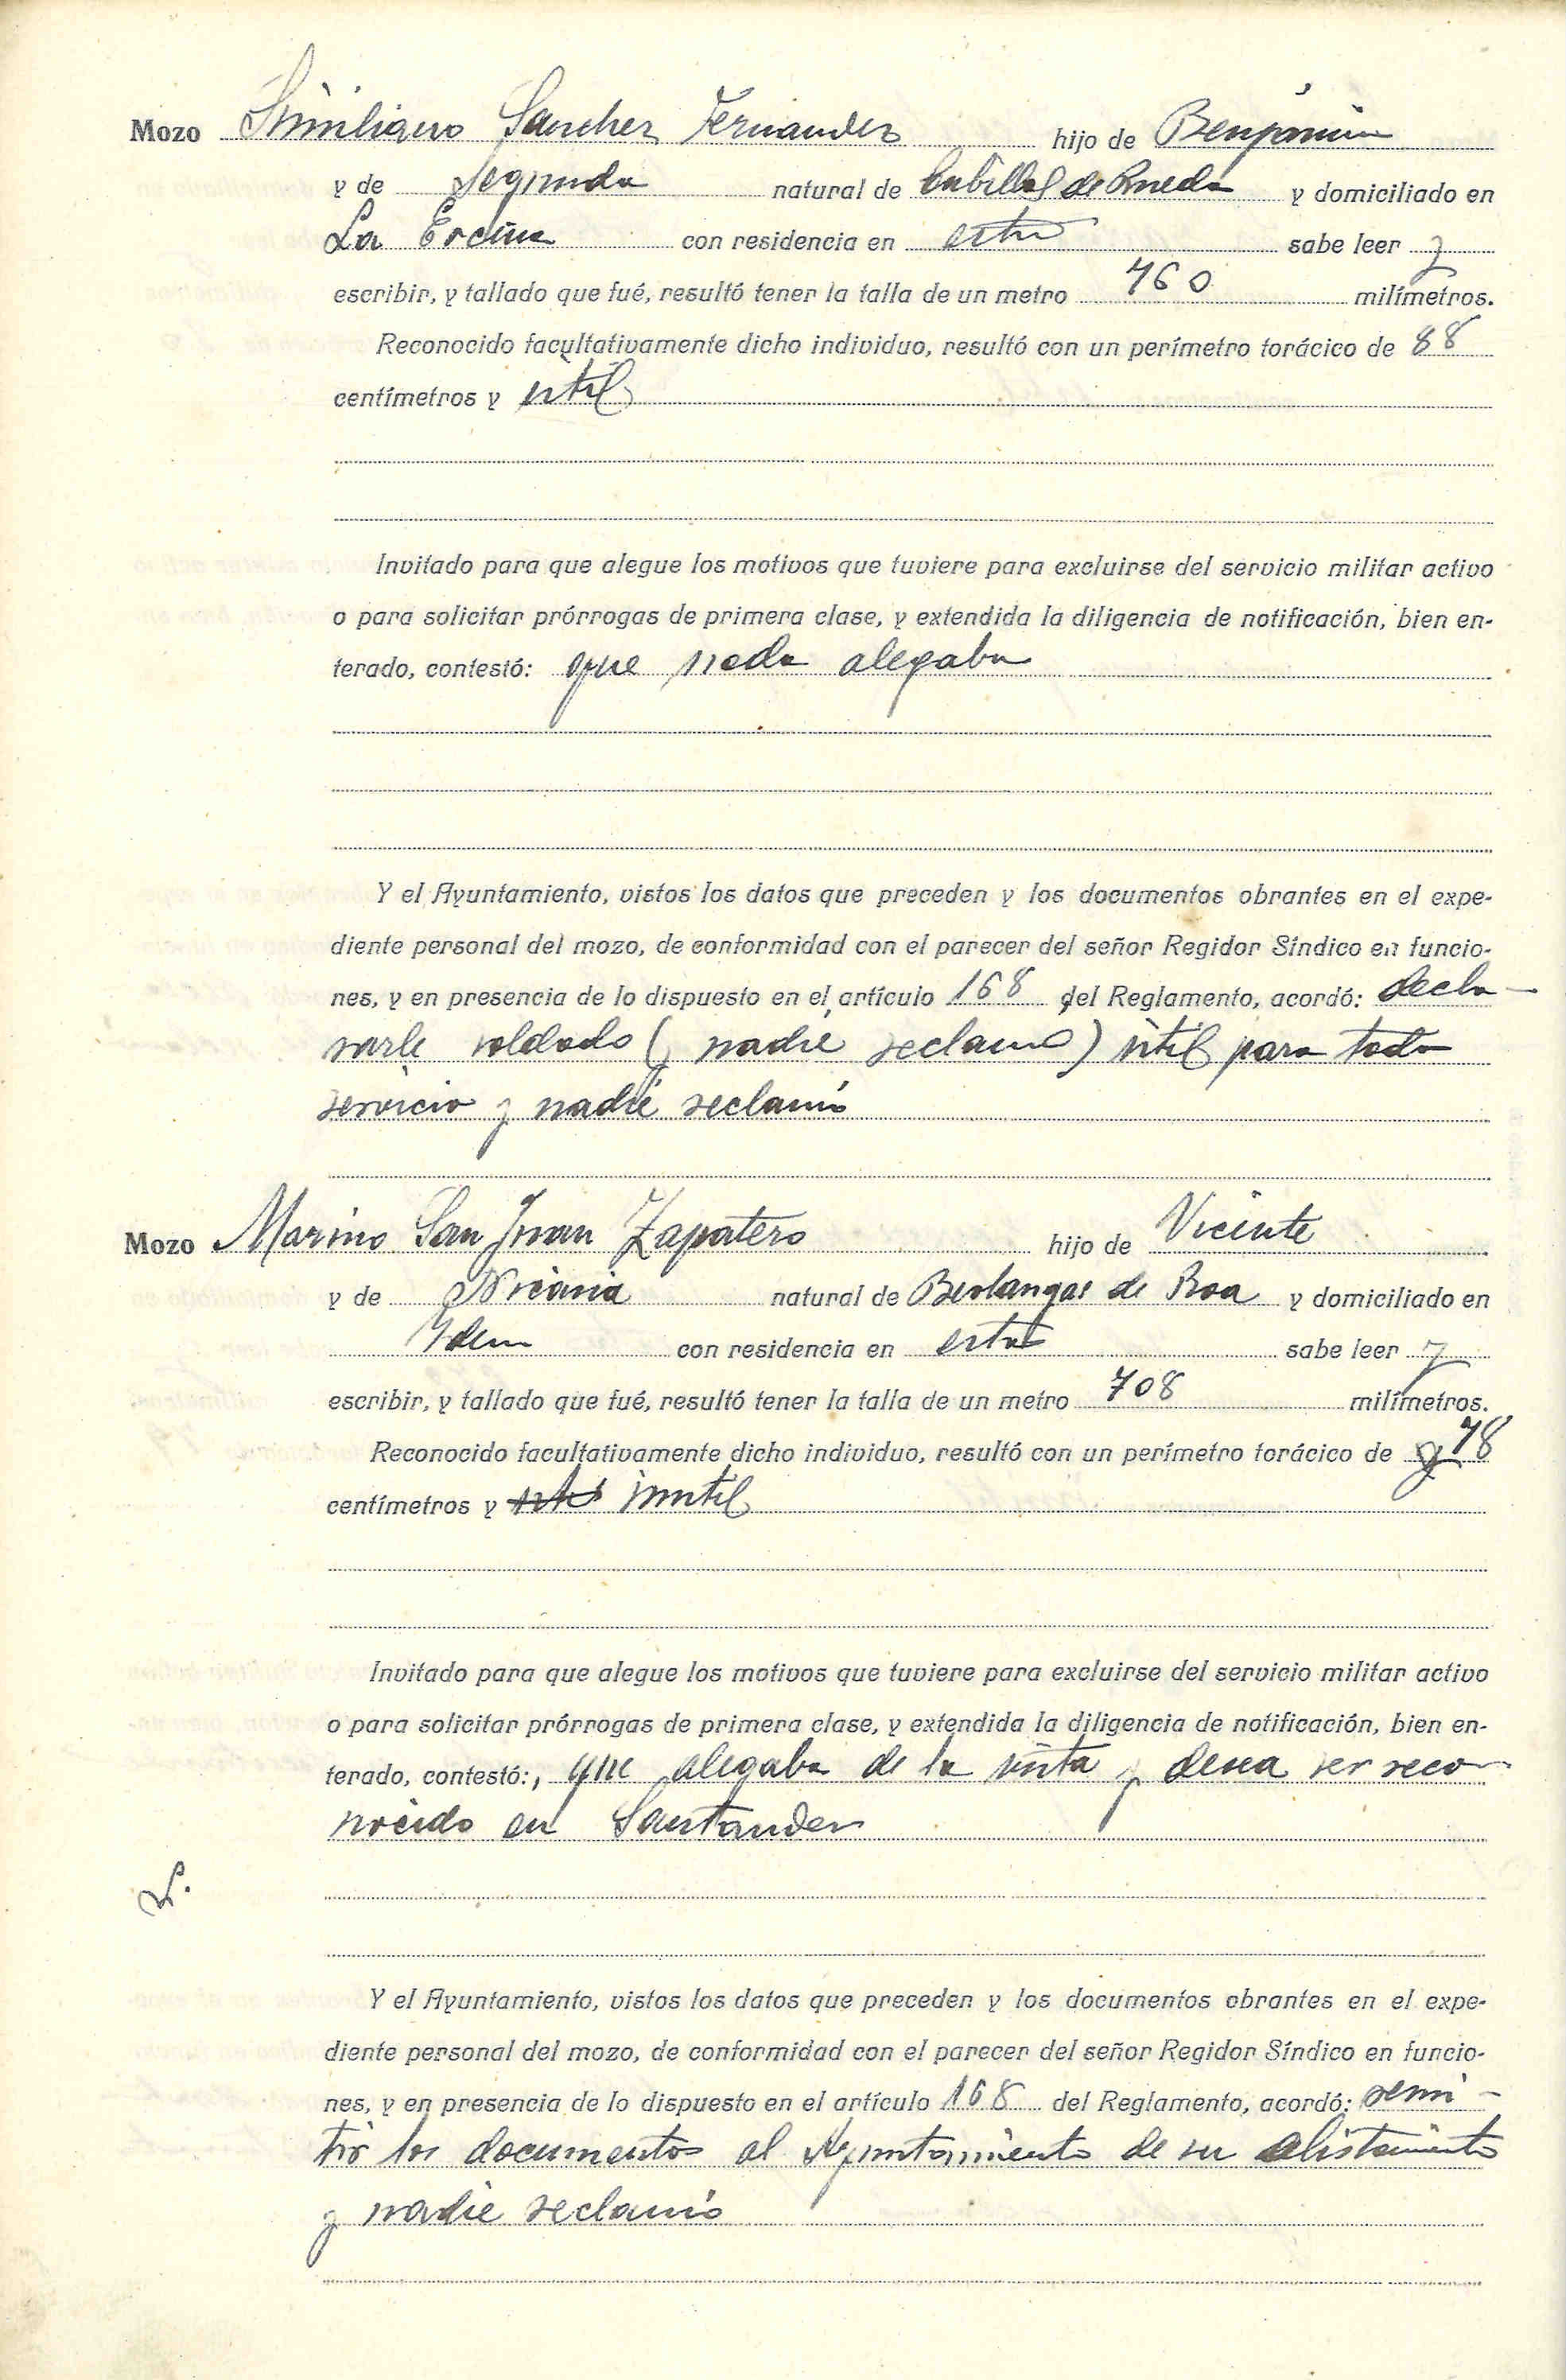 Mozo Similiano Sanchez Fernandez hijo de Benjamin
y de Segunda natural de Cubillas de Rueda y domiciliado en
La Ercina con residencia en esta sabe leer y
escribir, y tallado que fué, resultó tener la talla de un metro 760 milímetros.
Reconocido facultativamente dicho individuo, resultó con un perímetro torácico de 88
centímetros y útil
Invitado para que alegue los motivos que tuviere para excluirse del servicio militar activo
o para solicitar prórrogas de primera clase, y extendida la diligencia de notificación, bien en-
terado, contestó: que nada alegaba
Y el Ayuntamiento, vistos los datos que preceden y los documentos obrantes en el expe-
diente personal del mozo, de conformidad con el parecer del señor Regidor Síndico en funcio-
nes, y en presencia de lo dispuesto en el artículo 168 del Reglamento, acordó: decla-
rarle soldado (y nadie reclamo) útil para todo
servicio y nadie reclamó
Mozo Marino San Juan Zapatero hijo de Vicente
y de natural de Berlangas de Roa y domiciliado en
Idem con residencia en esta sabe leer y
escribir, y tallado que fué, resultó tener la talla de un metro 708 milímetros.
Reconocido facultativamente dicho individuo, resultó con un perímetro torácico de 78
centímetros y inutil
Invitado para que alegue los motivos que tuviere para excluirse del servicio militar activo
o para solicitar prórrogas de primera clase, y extendida la diligencia de notificación, bien en-
terado, contestó: que alegaba de la vista y desea ser reco-
nocido en Santander
Y el Ayuntamiento, vistos los datos que preceden y los documentos obrantes en el expe-
diente personal del mozo, de conformidad con el parecer del señor Regidor Síndico en funcio-
nes, y en presencia de lo dispuesto en el artículo 168 del Reglamento, acordó: remi-
tir los documentos al Ayuntamiento de su alistamiento
y nadie reclamó